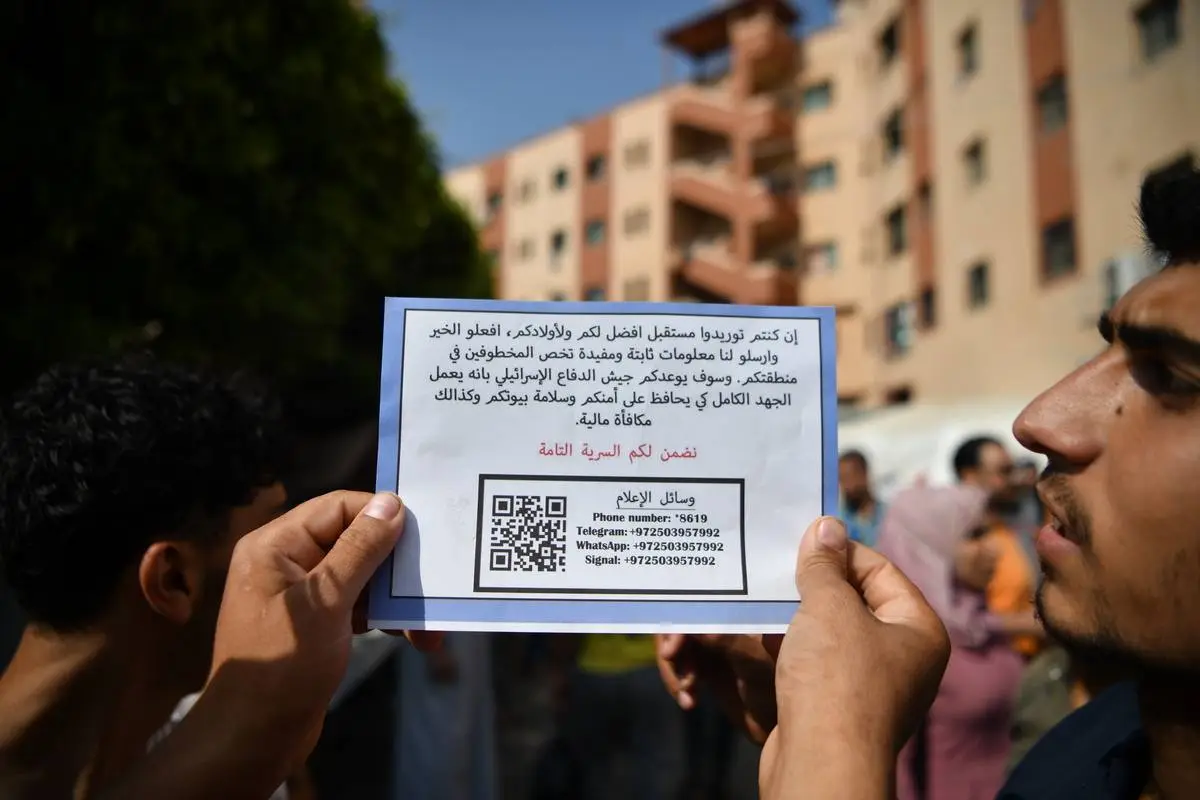 إن كنتم توريدوا مستقبل افضل لكم ولأولادكم، افعلو الخير
وارسلو لنا معلومات ثابتة ومفيدة تخص المخطوفين في
منطقتكم. وسوف يوعدكم جيش الدفاع الإسرائيلي بانه يعمل
الجهد الكامل كي يحافظ على أمنكم وسلامة بيوتكم وكذالك
مكافأة مالية.
نضمن لكم السرية التامة
وسائل الإعلام
Phone number: *8619
Telegram: +972503957992
WhatsApp: +972503957992
Signal: +972503957992